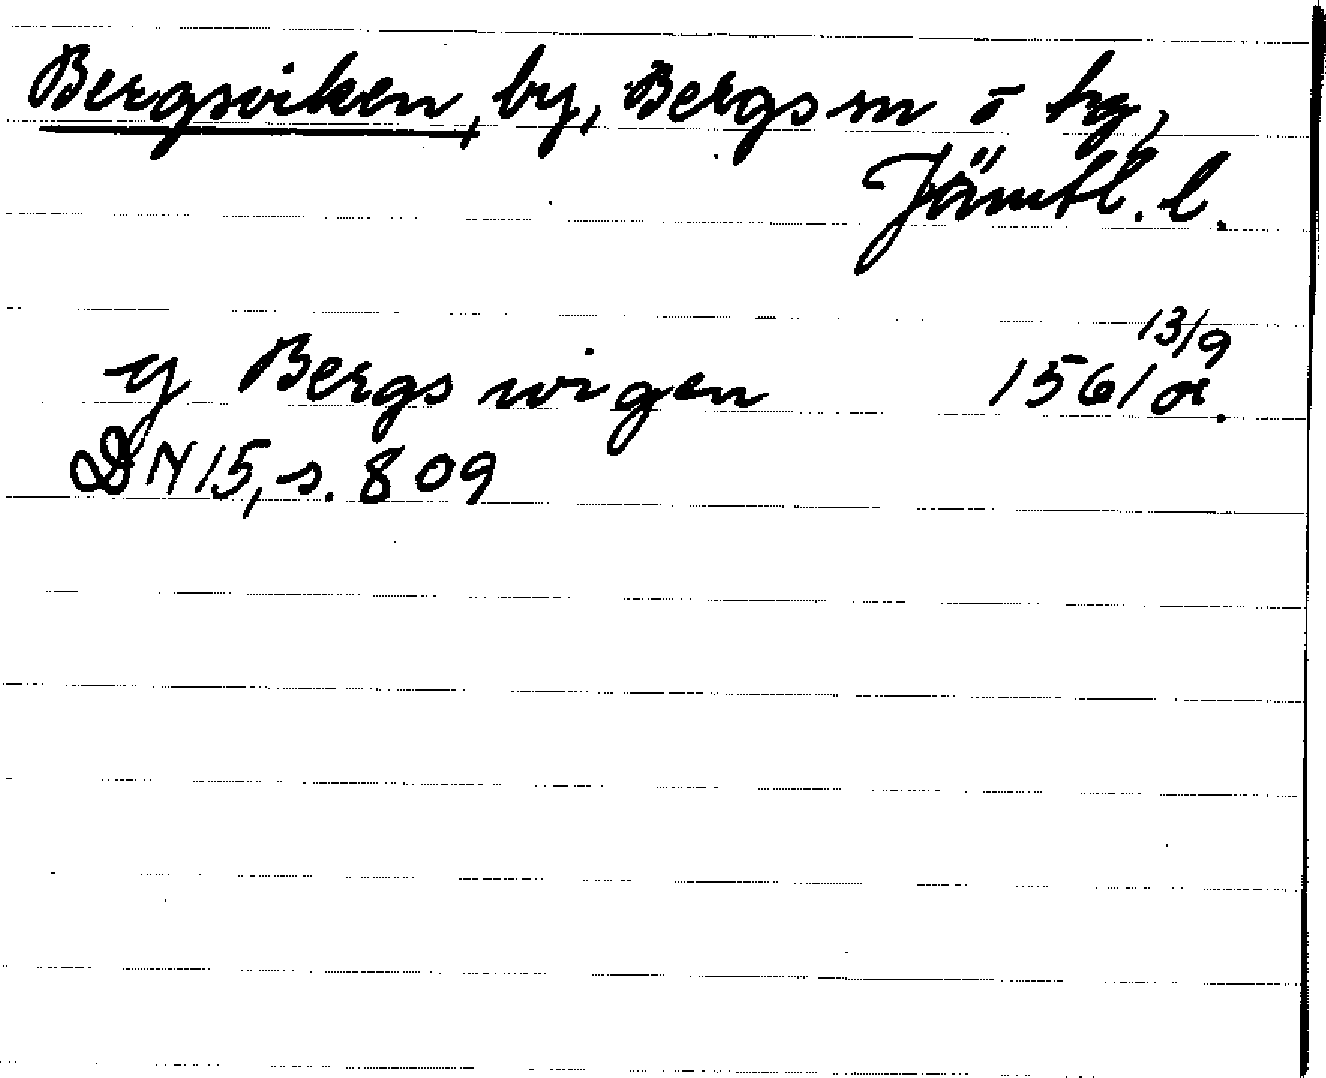 Bergsviken, by, Bergs sn o hg,
Jämtl. l.
13/9
y Bergs wigen 1561 or.
DN 15, s. 809